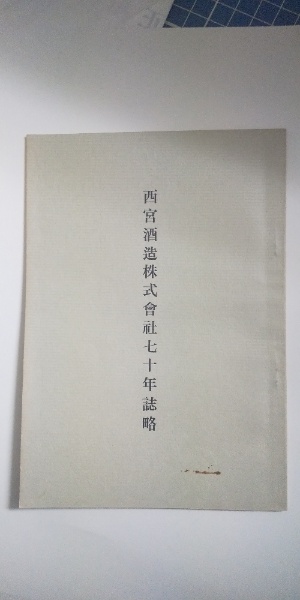 西宮酒造株式會社七十年誌略